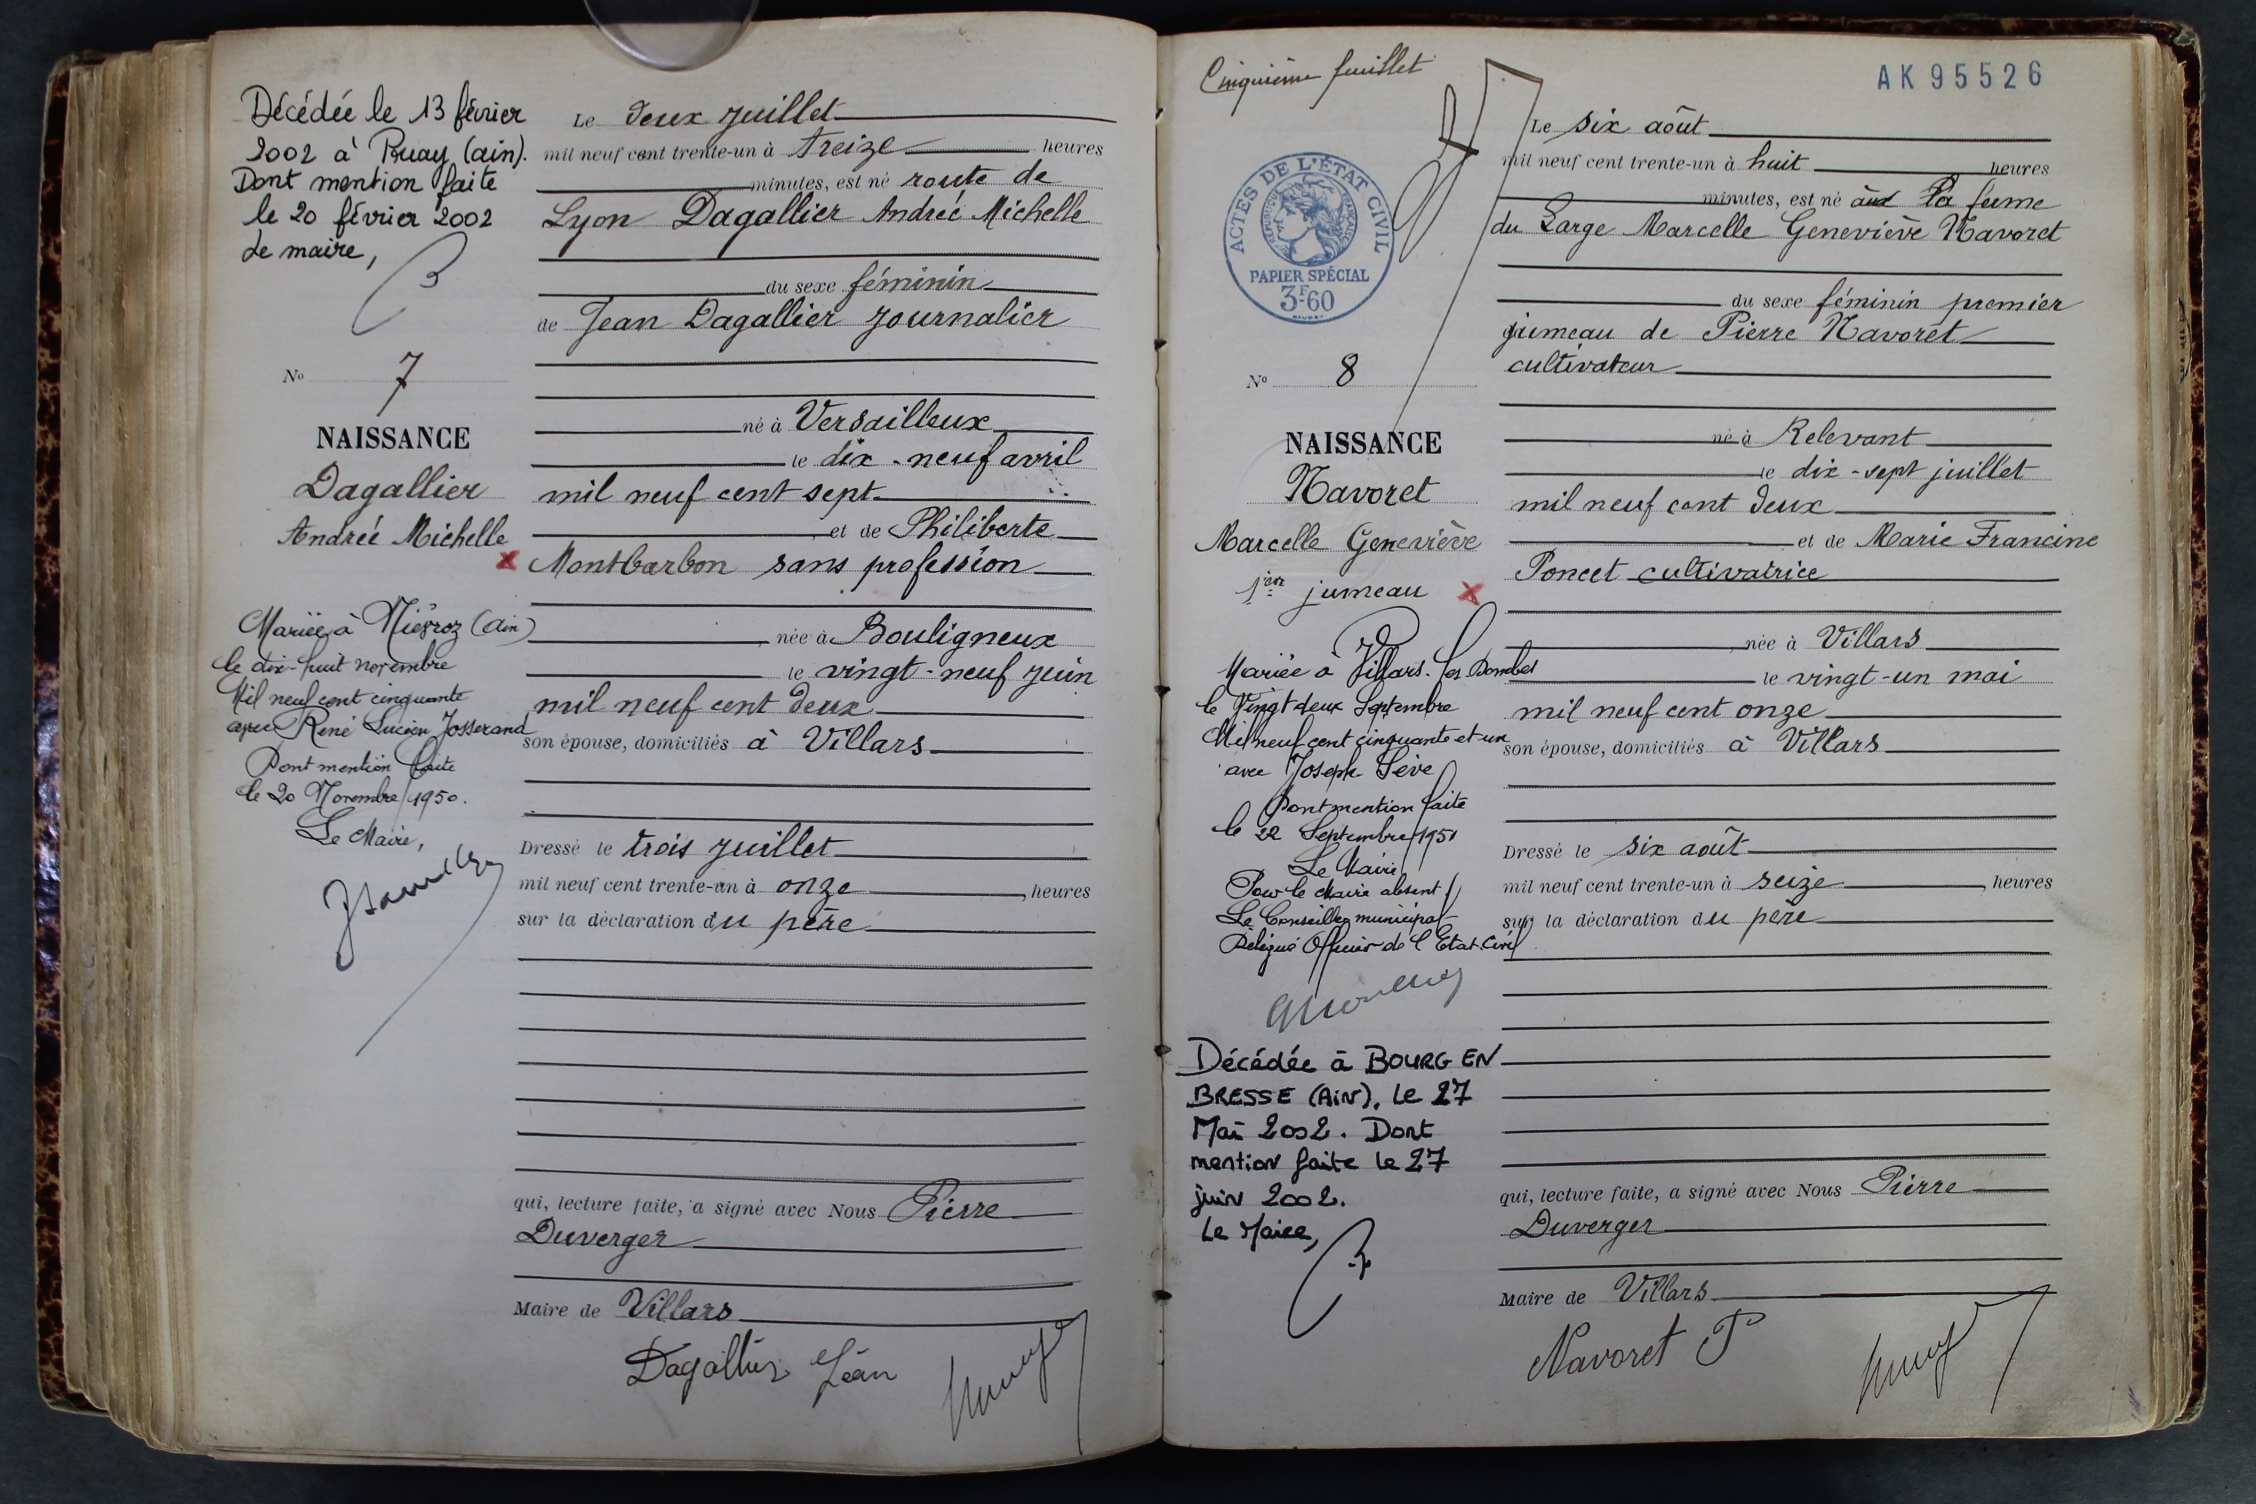 Décédée le 13 février
2002 à Ruay (ain).
Dont mention faite
le 20 février 2002
Le maire,
No 7
NAISSANCE
Dagallier
Andrée Michelle
Mariée à Niévroz (Ain)
le dix-huit novembre
Mil neuf cent cinquante
avec René Lucien Josserand
Dont mention faite
le 20 Novembre 1950.
Le Maire,
Le deux juillet
mil neuf cent trente-un à treize heures
minutes, est né route de
Lyon Dagallier Andrée Michelle
du sexe féminin
de Jean Dagallier journalier
né à Versailleux
le dix-neuf avril
mil neuf cent sept
et de Philiberte
Montbarbon sans profession
née à Bouligneux
le vingt-neuf juin
mil neuf cent deux
son épouse, domiciliés à Villars
Dressé le trois juillet
mil neuf cent trente-un à onze heures
sur la déclaration du père
qui, lecture faite, a signé avec Nous Pierre
Duverger
Maire de Villars
Dagallier Jean
Cinquième feuillet
AK 95526
ACTES DE L'ÉTAT CIVIL
PAPIER SPÉCIAL
3F60
No 8
NAISSANCE
Navoret
Marcelle Geneviève
1ier jumeau
Mariée à Villars-les-Dombes
le Vingt deux Septembre
Mil neuf cent cinquante et un
avec Joseph Sève
Dont mention faite
le 22 Septembre 1951
Le Maire
Pour le Maire absent
Le Conseiller municipal
Délégué Officier de l'Etat Civil
Décédée à BOURG EN
BRESSE (AiN), le 27
Mai 2002. Dont
mention faite le 27
juin 2002.
Le Maire,
Le six août
mil neuf cent trente-un à huit heures
minutes, est né La ferme
du Large Marcelle Geneviève Navoret
du sexe féminin premier
jumeau de Pierre Navoret
cultivateur
né à Relevant
le dix-sept juillet
mil neuf cent deux
et de Marie Francine
Poncet cultivatrice
née à Villars
le vingt-un mai
mil neuf cent onze
son épouse, domiciliés à Villars
Dressé le six août
mil neuf cent trente-un à seize heures
sur la déclaration du père
qui, lecture faite, a signé avec Nous Pierre
Duverger
Maire de Villars
Navoret P